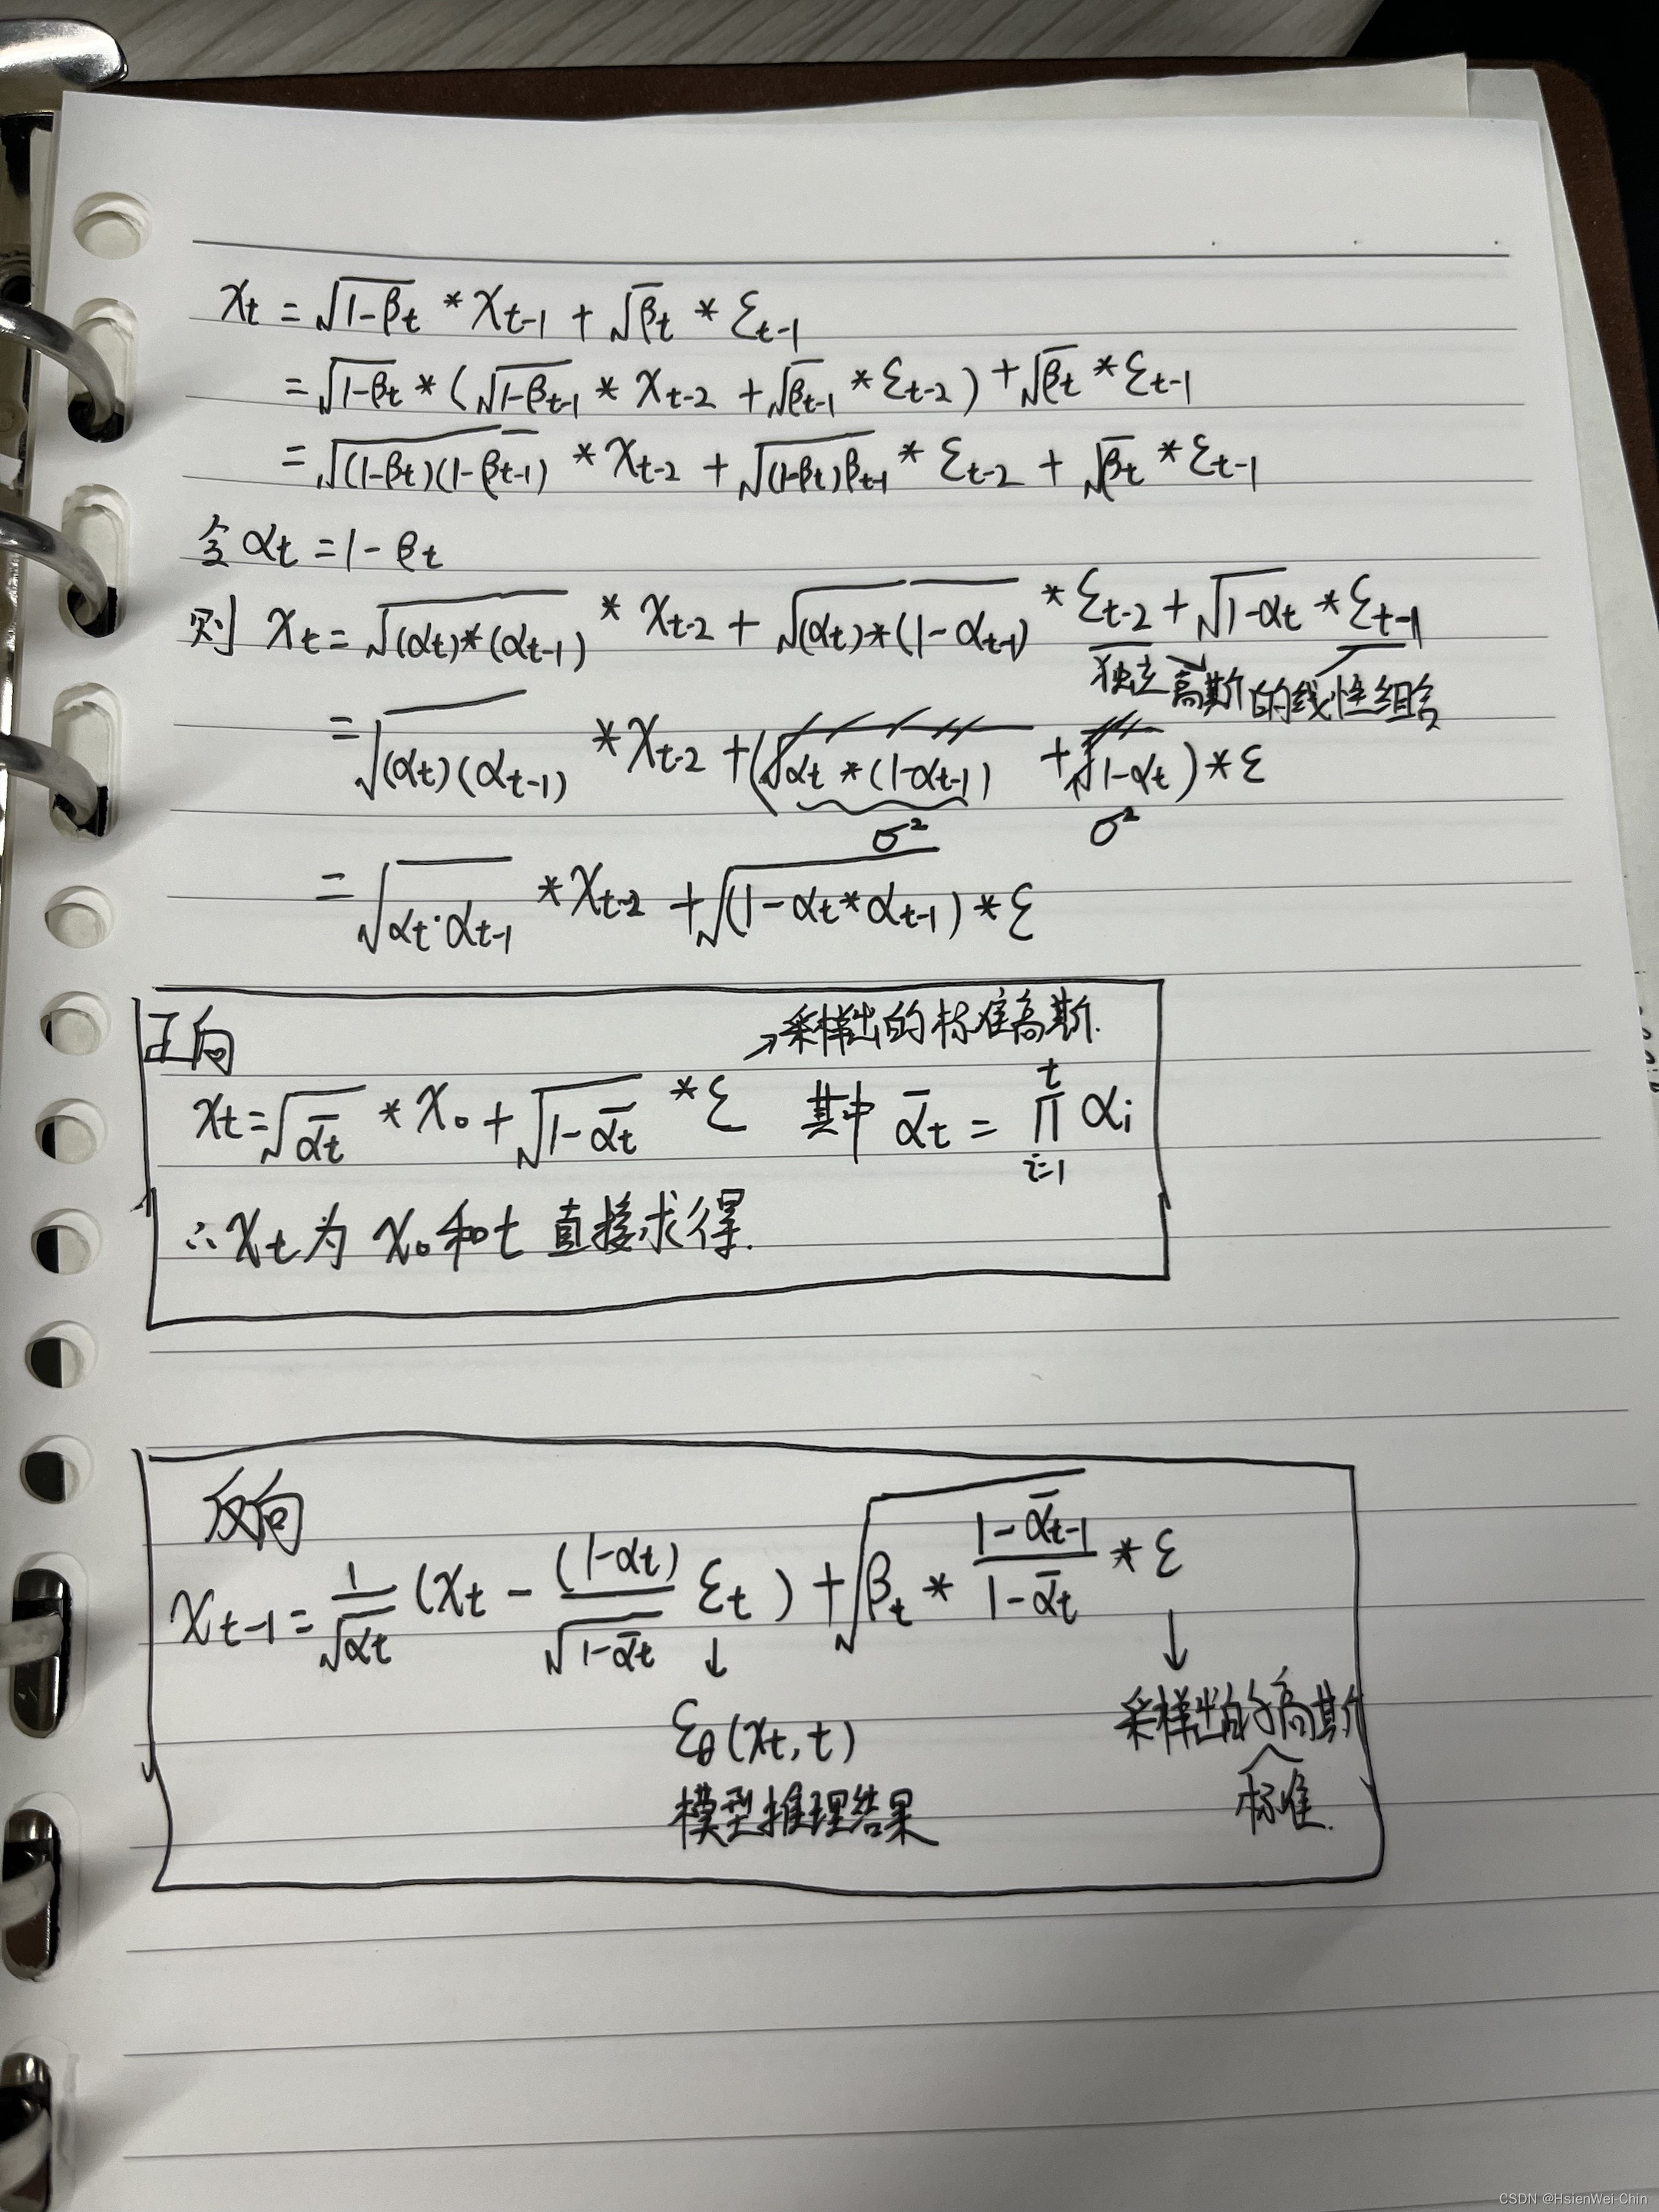 x_t = √(1-β_t) * x_{t-1} + √β_t * ε_{t-1}
= √(1-β_t) * (√(1-β_{t-1}) * x_{t-2} + √β_{t-1} * ε_{t-2}) + √β_t * ε_{t-1}
= √((1-β_t)(1-β_{t-1})) * x_{t-2} + √((1-β_t)β_{t-1}) * ε_{t-2} + √β_t * ε_{t-1}
令 α_t = 1-β_t
则 x_t = √((α_t)*(α_{t-1})) * x_{t-2} + √((α_t)*(1-α_{t-1})) * ε_{t-2} + √(1-α_t) * ε_{t-1}
独立高斯的线性组合
= √((α_t)(α_{t-1})) * x_{t-2} + (α_t*(1-α_{t-1}) + 1-α_t) * ε
σ² σ²
= √(α_t·α_{t-1}) * x_{t-2} + √(1-α_t*α_{t-1}) * ε
正向
→采样出的标准高斯.
x_t = √ᾱ_t * x_0 + √(1-ᾱ_t) * ε 其中 ᾱ_t = ∏_{i=1}^{t} α_i
∴ x_t 为 x_0 和 t 直接求得.
反向
x_{t-1} = 1/√α_t (x_t - (1-α_t)/√(1-ᾱ_t) ε_t) + √(β_t * (1-ᾱ_{t-1})/(1-ᾱ_t)) * ε
↓ ↓
ε_θ(x_t, t)
模型推理结果
采样出的高斯
标准.
CSDN @HsienWei-Chin